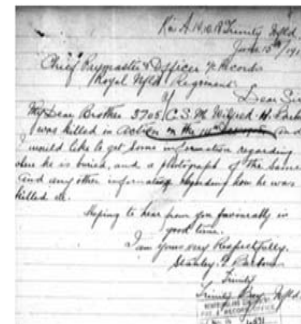 Trinity Nfld.
June 15th / 19
Chief Paymaster & Officer i/c Records
Royal Nfld. Regiment
Dear Sir
My Dear Brother 3705 C.S.M. Wilfred H. Parb
was killed in action on the 14th and
I would like to get some information regarding
where he is buried, and a photograph of the same
and any other information regarding how he was
killed etc.
Hoping to hear from you favorably in
good time.
I am yours very Respectfully.
Stanley Parsons
Trinity
Trinity Bay Nfld.